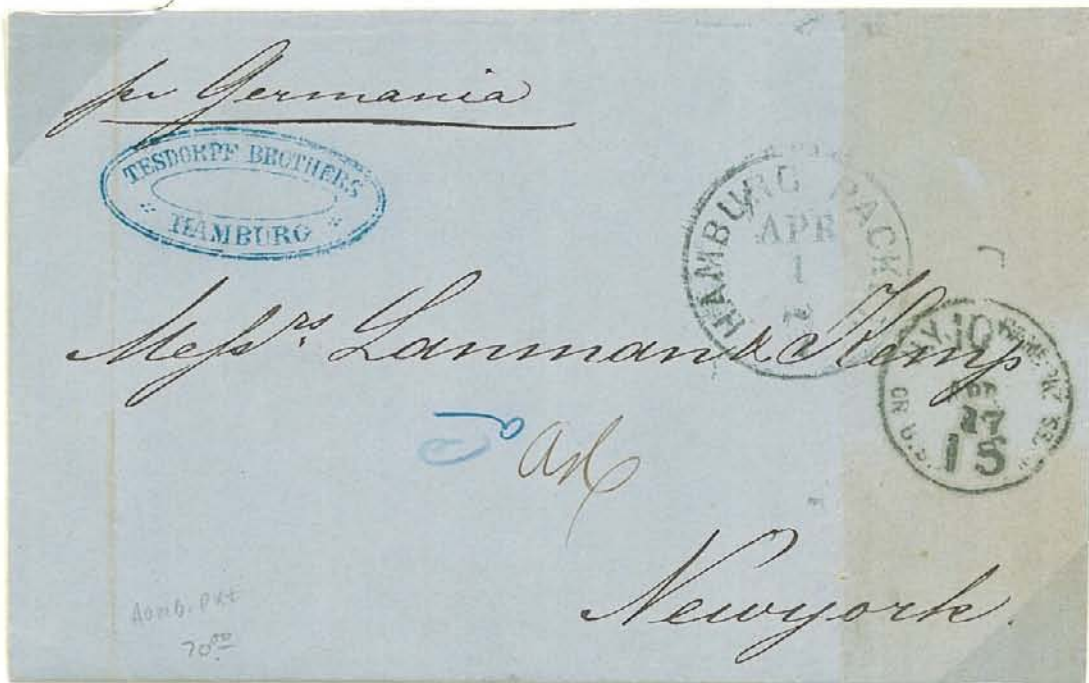 pr Germania
TESDORPF BROTHERS
HAMBURG
HAMBURG PACK
APR
1
N.Y. 10
APR
27
15
OR U.S.
Messrs Lanman & Kemp
Newyork.
HAMB. PKT
70⁰⁰